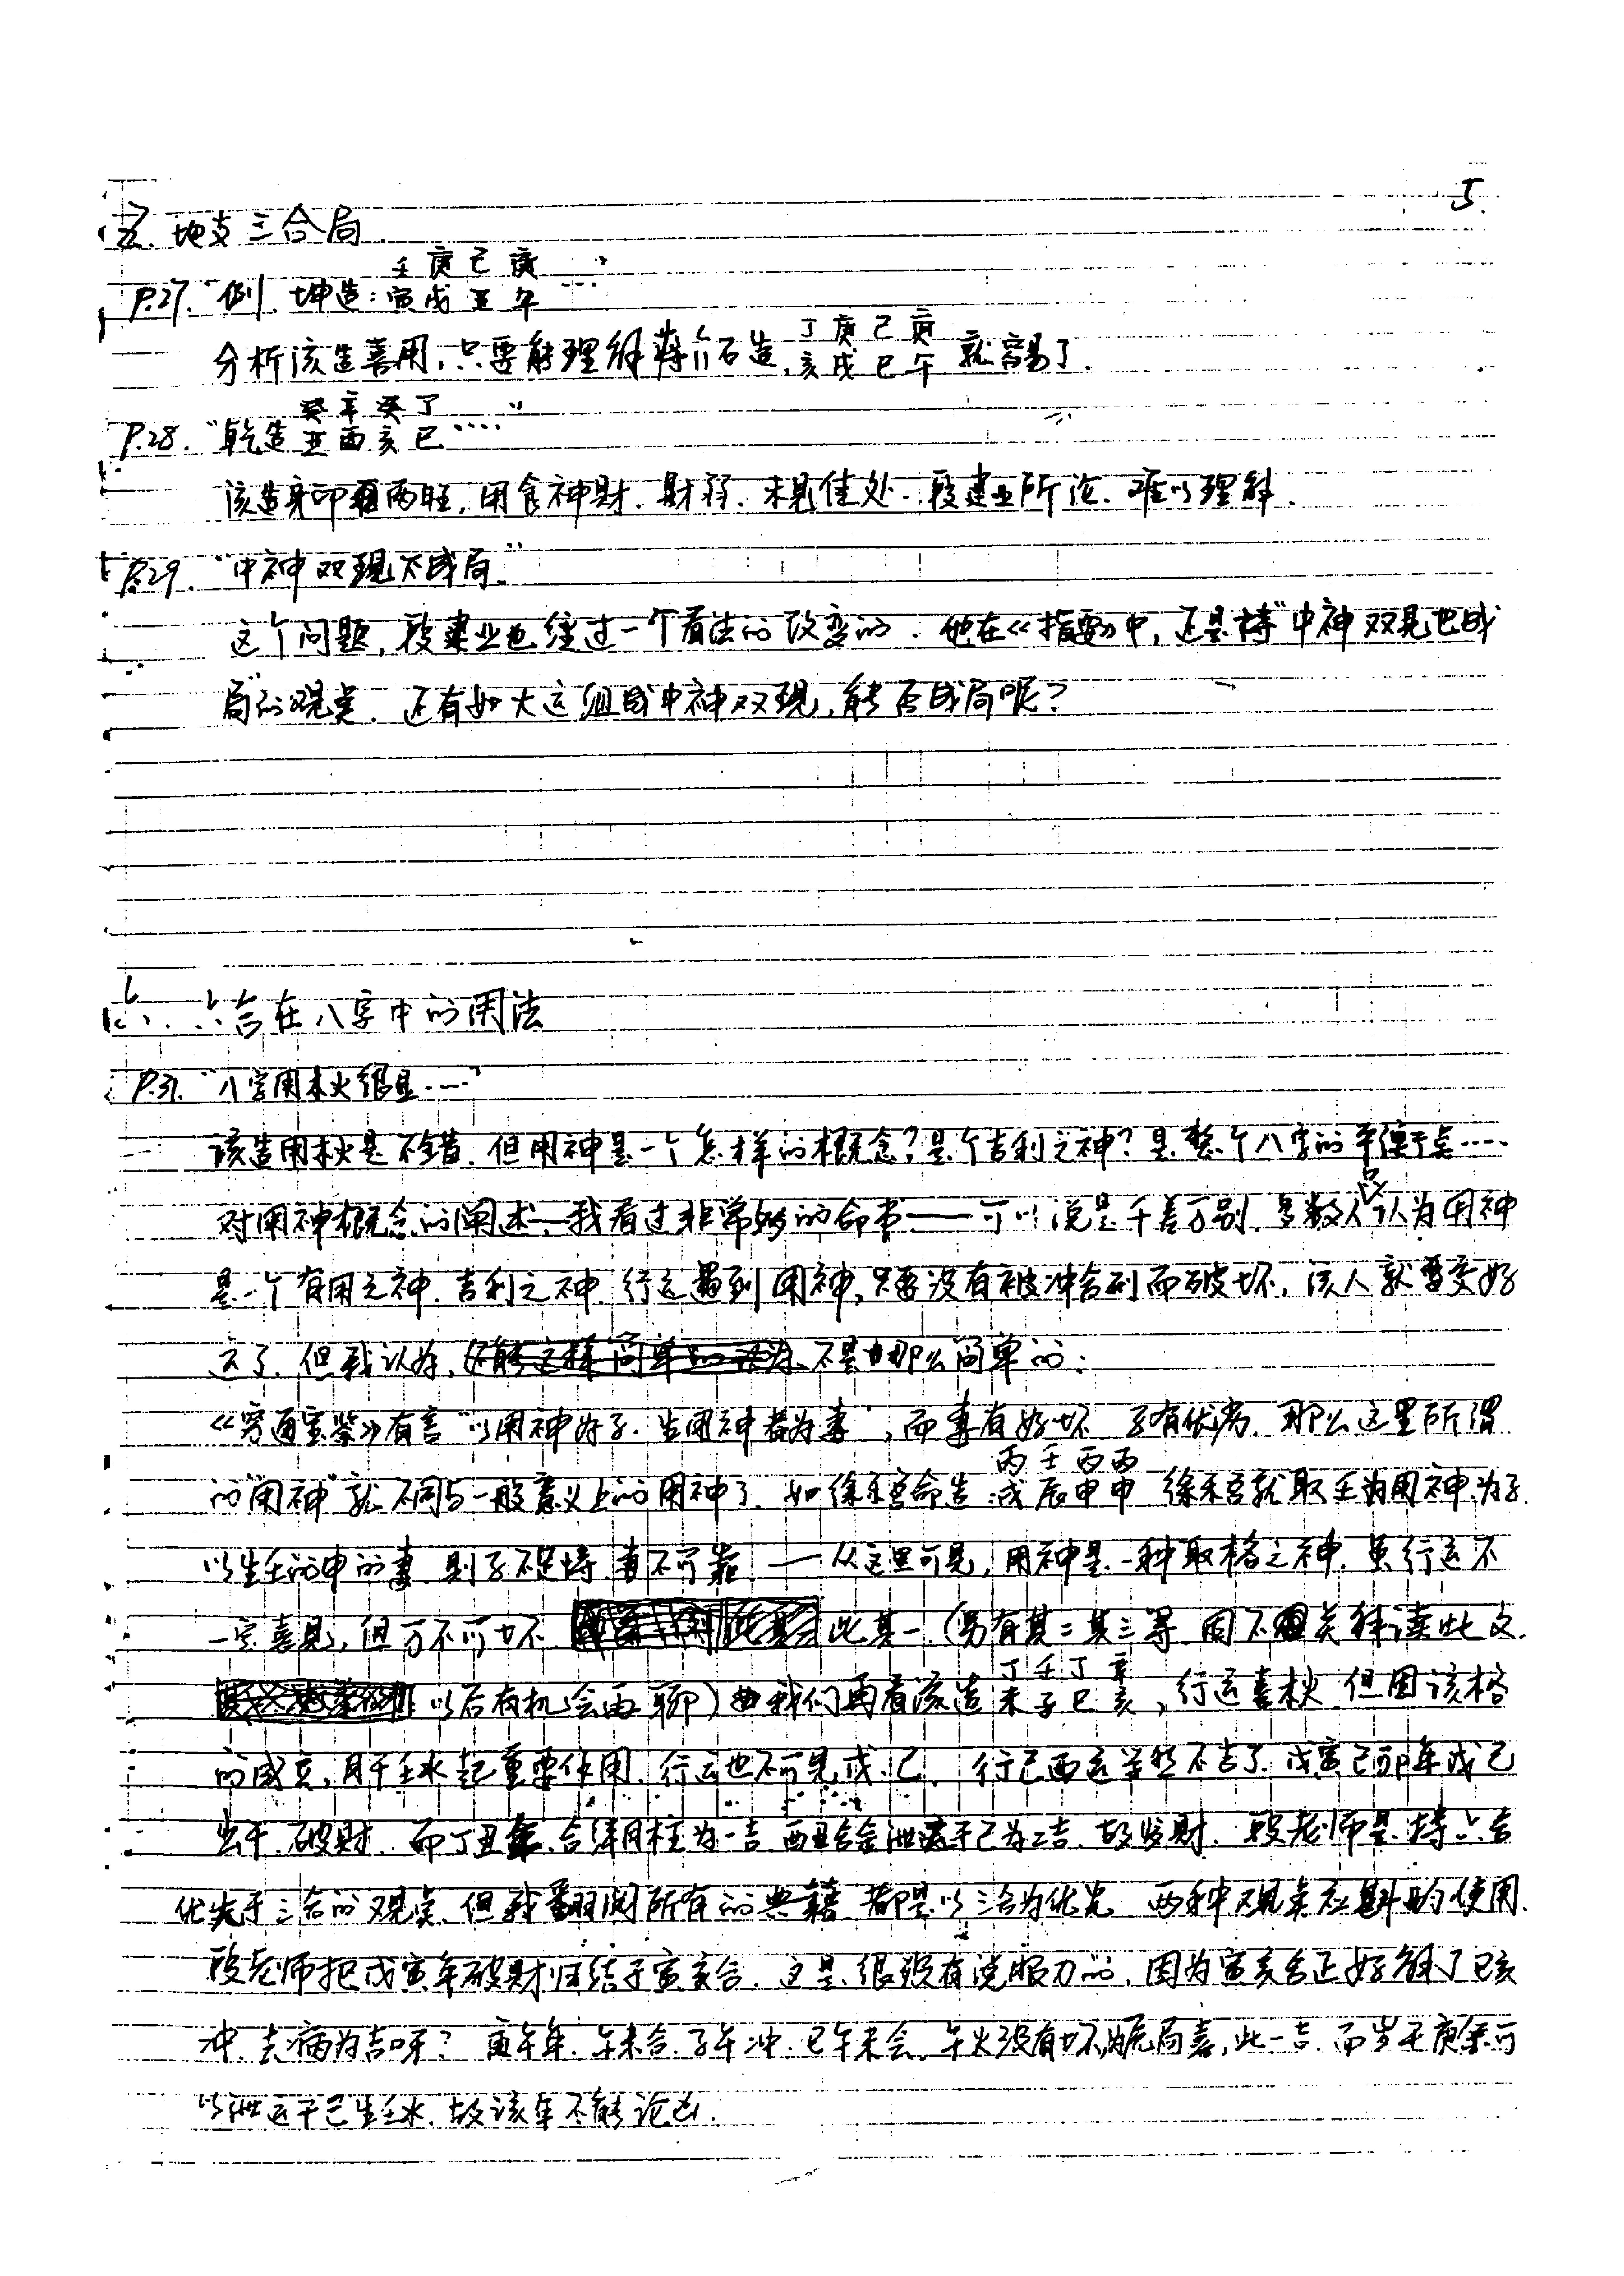 5.
五. 地支三合局.
壬 庚 己 庚
P.27. "例. 坤造: 寅 戌 丑 午 ……"
丁 庚 己 庚
分析该造喜用, 只要能理解蒋介石造, 亥 戌 巳 午 就容易了.
癸 辛 癸 丁
P.28. "乾造 丑 酉 亥 巳 ……"
该造身印两旺, 用食神财. 财弱. 未见佳处. 段建业所论. 难以理解.
P.29. "中神双现不成局."
这个问题, 段建业也经过一个看法的改变的. 他在《指要》中, 还是持"中神双见也成
局"的观点. 还有如大运组成中神双现, 能否成局呢?
六. 六合在八字中的用法
P.31. "八字用木火很显……"
该造用木火是不错. 但用神是一个怎样的概念? 是个吉利之神? 是整个八字的平衡点……
对用神概念的阐述—我看过非常多的命书——可以说是千差万别. 多数人只认为用神
是一个有用之神. 吉利之神. 行运遇到用神, 只要没有被冲合刑而破坏, 该人就会变好
运了. 但我认为, 不是那么简单的:
《穷通宝鉴》有言"以用神为子. 生用神者为妻", 而妻有好坏 子有优劣. 那么这里所谓
丙 壬 丙 丙
的"用神"就不同与一般意义上的用神了. 如徐乐吾命造: 戌 辰 申 申 徐乐吾就取壬为用神为子.
以生壬的申的妻 则子不足恃 妻不可靠. —从这里可见, 用神是一种取格之神. 虽行运不
一定喜见, 但万不可坏. 此其一. (另有其二其三等 因不关本读此文.
丁 壬 丁 辛
以后有机会再聊) 我们再看该造 未 子 巳 亥, 行运喜木火 但因该格
的成立, 月干壬水起重要作用. 行运也不可见戊、己. 行己酉运当然不吉了. 戊寅己卯年戊己
出干. 破财. 而丁丑年. 合绊月柱为一吉. 酉丑合金泄运干己为二吉. 故发财. 段老师是持六合
优先于三合的观点. 但我翻阅所有的典籍. 都是以三合为优先 两种观点应斟酌使用.
段老师把戊寅年破财归结于寅亥合. 这是很没有说服力的. 因为寅亥合正好解了巳亥
冲. 去病为吉呀? 庚午年. 午未合. 子午冲. 巳午未会. 午火没有坏, 为原局喜, 此一吉. 而岁干庚金可
以泄运干己生壬水. 故该年不能论凶.